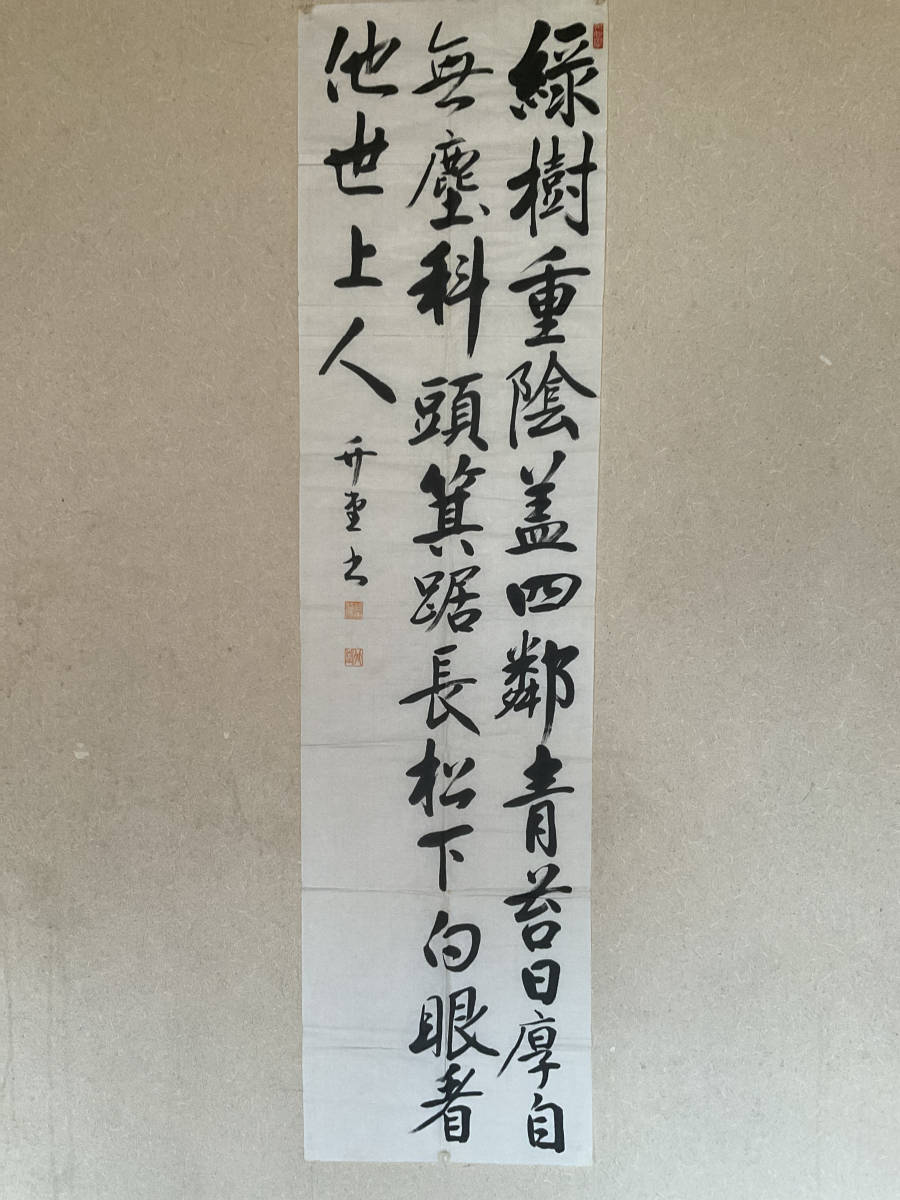 綠樹重陰盖四鄰青苔日厚自
無塵科頭箕踞長松下白眼看
他世上人
竹堂书